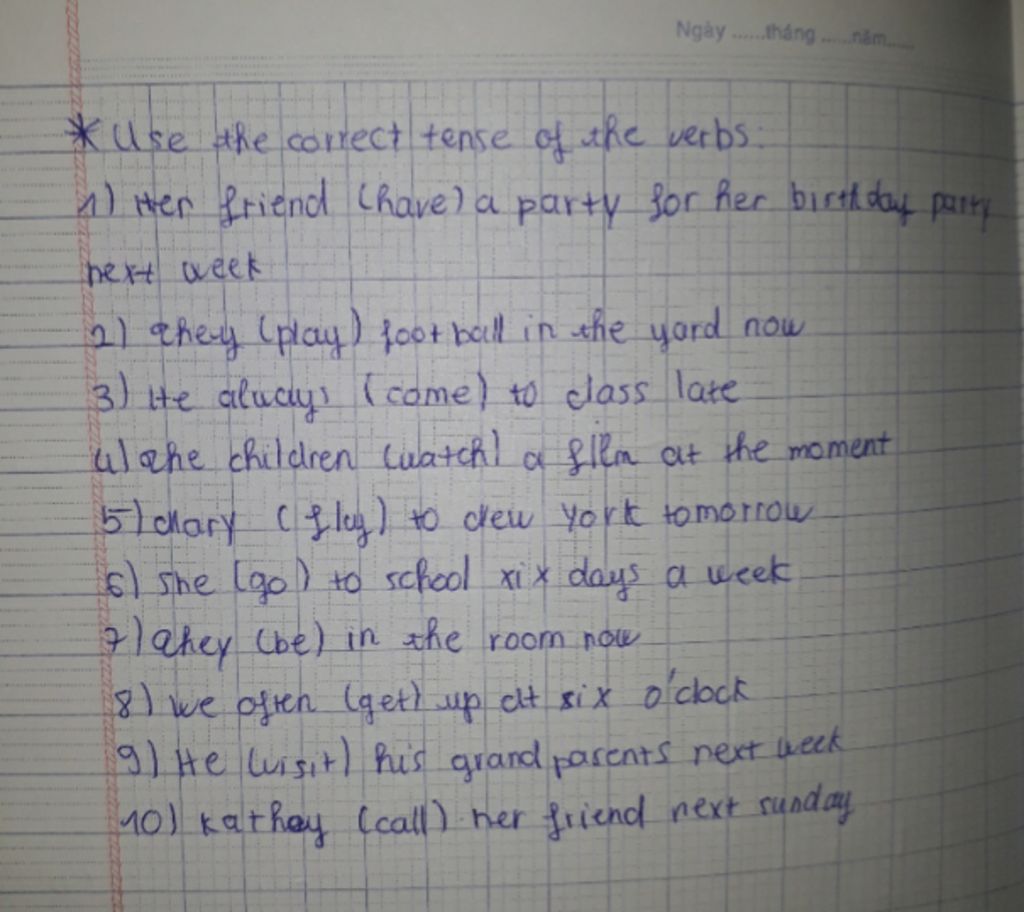 Ngày ......tháng ......năm......
* Use the correct tense of the verbs:
1) Her friend (have) a party for her birthday party
next week
2) They (play) football in the yard now
3) He always (come) to class late
4) The children (watch) a film at the moment
5) Mary (fly) to New York tomorrow
6) She (go) to school xix days a week
7) They (be) in the room now
8) We often (get) up at six o'clock
9) He (visit) his grandparents next week
10) Kathay (call) her friend next sunday